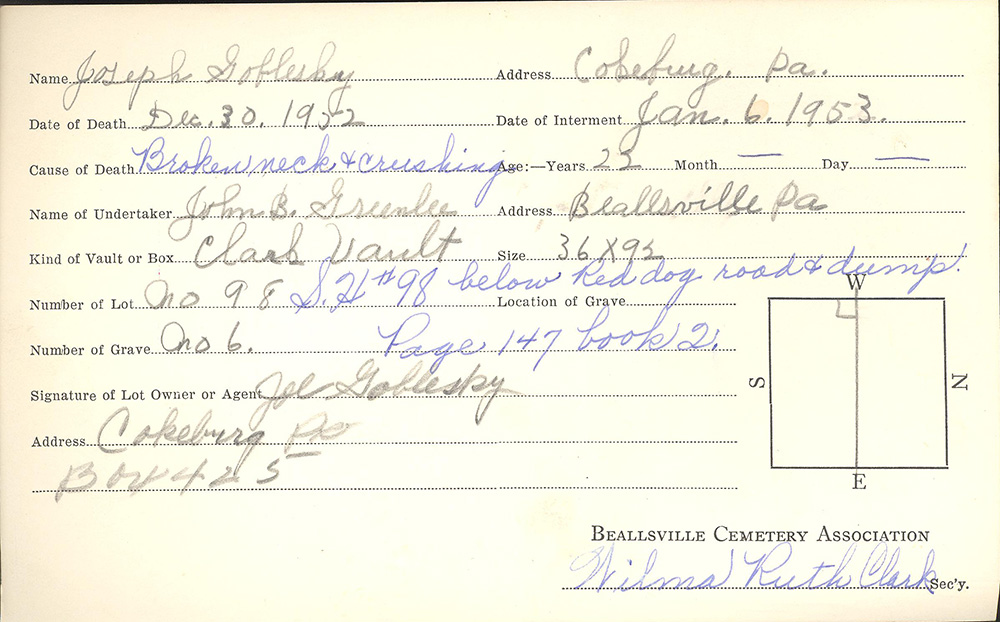 Name Joseph Goblesky Address Cokeburg. Pa.
Date of Death Dec. 30. 1952 Date of Interment Jan. 6. 1953.
Cause of Death Broken neck & crushing Age:—Years 22 Month — Day —
Name of Undertaker John B. Greenlee Address Beallsville Pa
Kind of Vault or Box Clark Vault Size 36 X 92
Number of Lot No 98 S. H #98 below Red dog road & dump. Location of Grave
W
Number of Grave No 6. Page 147 book 2.
S N
Signature of Lot Owner or Agent Joe Goblesky
Address Cokeburg Pa
Box 425
E
BEALLSVILLE CEMETERY ASSOCIATION
Wilma Ruth Clark Sec'y.